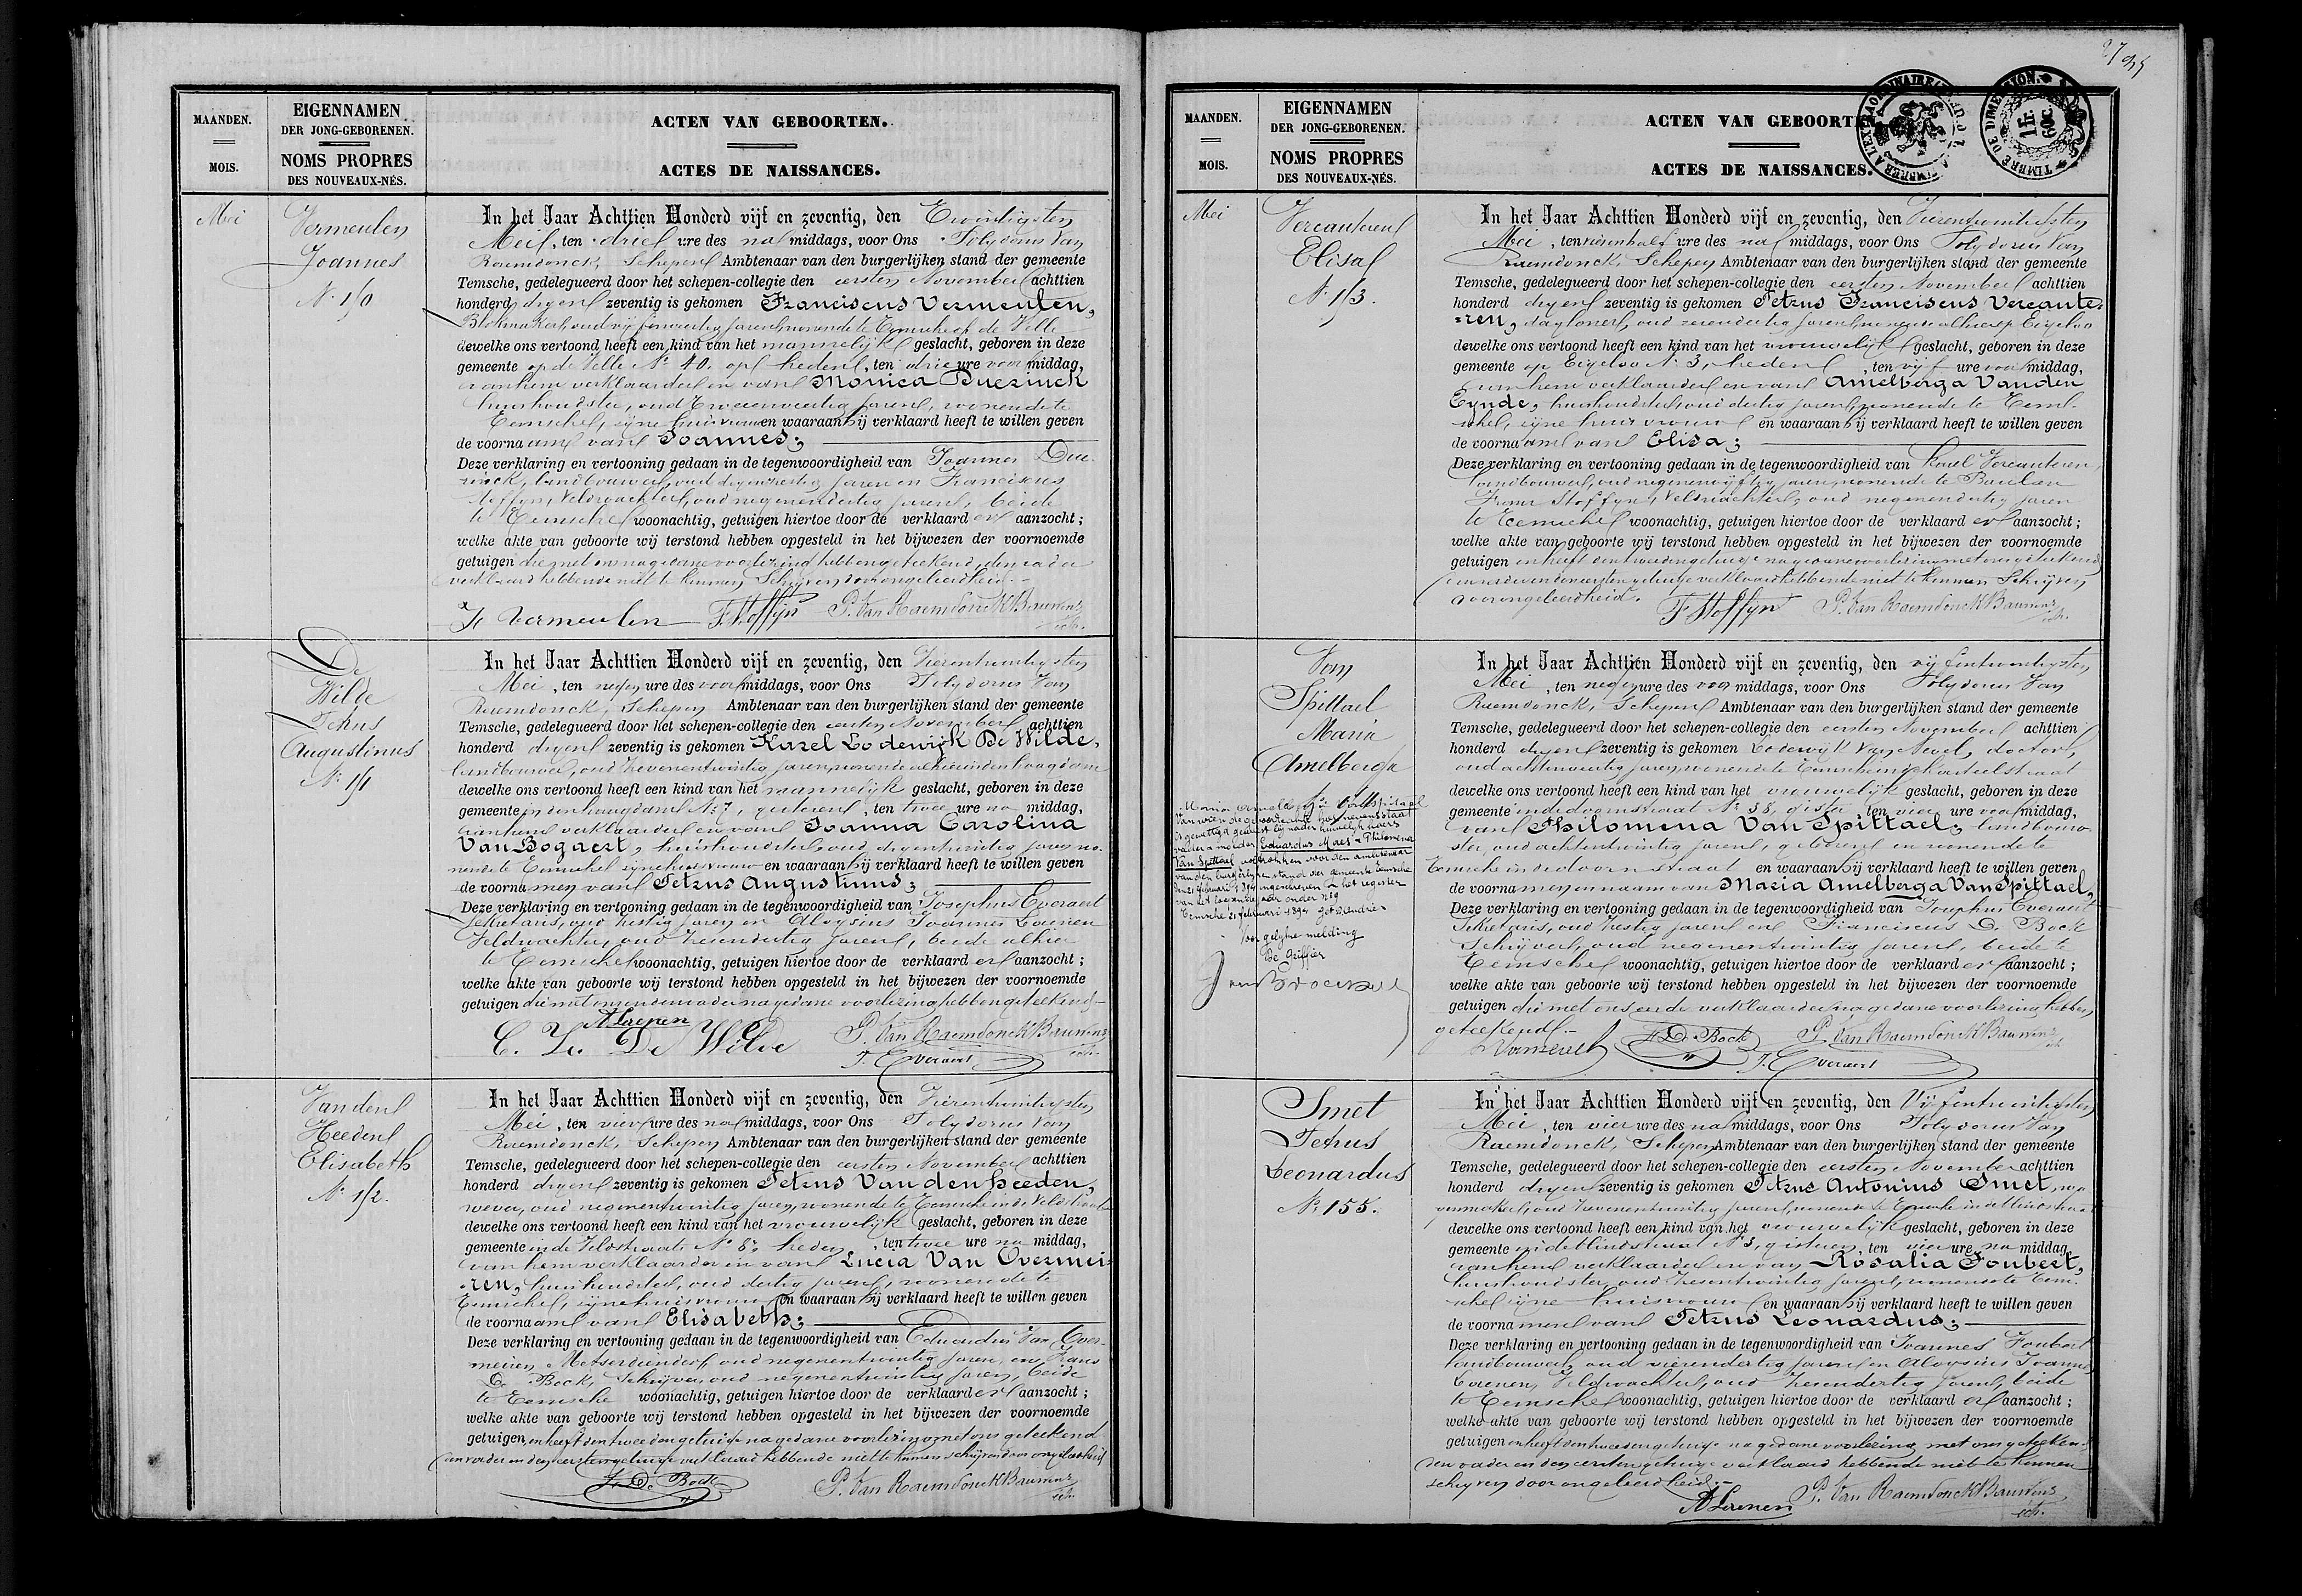 MAANDEN.
MOIS.
EIGENNAMEN
DER JONG-GEBORENEN.
NOMS PROPRES
DES NOUVEAUX-NÉS.
ACTEN VAN GEBOORTEN.
ACTES DE NAISSANCES.
Mei
Vermeulen
Joannes
In het Jaar Achttien Honderd vijf en zeventig, den Twintigsten
Mei, ten drie ure des na middags, voor Ons Polydorus Van
Raemdonck, Schepen Ambtenaar van den burgerlijken stand der gemeente
Temsche, gedelegueerd door het schepen-collegie den eersten November achttien
honderd drij en zeventig is gekomen Franciscus Vermeulen,
Blokmaker, oud vijfenveertig jaren, wonende te Temsche op de Velle
dewelke ons vertoond heeft een kind van het mannelijk geslacht, geboren in deze
gemeente op de Velle No 40. op heden, ten drie ure voor middag,
van hem verklaarder en van Monica Duerinck
huishoudster, oud tweeenveertig jaren, wonende te
Temsche, zijne huisvrouw en waaraan hij verklaard heeft te willen geven
de voornaam van Joannes;
Deze verklaring en vertooning gedaan in de tegenwoordigheid van Joannes Due-
rinck, landbouwer, oud drijenzestig jaren en Franciscus
Stoffyn, Veldwachter, oud negenendertig jaren, beide
te Temsche woonachtig, getuigen hiertoe door de verklaarder aanzocht;
welke akte van geboorte wij terstond hebben opgesteld in het bijwezen der voornoemde
getuigen die met ons na gedane voorlezing hebben geteekend, den vader
verklaard hebbende niet te kunnen Schrijven door ongeleerdheid.
F. Vermeulen F. Stoffyn P. Van Raemdonck Bauwens
sch.
De
Wilde
Petrus
Augustinus
In het Jaar Achttien Honderd vijf en zeventig, den Vierentwintigsten
Mei, ten negen ure des voormiddags, voor Ons Polydorus Van
Raemdonck, Schepen Ambtenaar van den burgerlijken stand der gemeente
Temsche, gedelegueerd door het schepen-collegie den eersten November achttien
honderd drij en zeventig is gekomen Karel Lodewijk De Wilde,
landbouwer, oud zevenentwintig jaren, wonende alhier in den haagdam
dewelke ons vertoond heeft een kind van het mannelijk geslacht, geboren in deze
gemeente in den haagdam No 7, gisteren, ten twee ure na middag,
van hem verklaarder en van Joanna Carolina
Van Bogaert, huishoudster, oud drijentwintig jaren, wo-
nende te Temsche zijne huisvrouw en waaraan hij verklaard heeft te willen geven
de voornamen van Petrus Augustinus;
Deze verklaring en vertooning gedaan in de tegenwoordigheid van Josephus Everaert
Sekretaris, oud zestig jaren en Aloysius Joannes Loenen
Veldwachter, oud zesendertig jaren, beide alhier
te Temsche woonachtig, getuigen hiertoe door de verklaarder aanzocht;
welke akte van geboorte wij terstond hebben opgesteld in het bijwezen der voornoemde
getuigen die met ons en den vader na gedane voorlezing hebben geteekend
A. Loenen
C. L. De Wilde P. Van Raemdonck Bauwens
sch.
J. Everaert
Vanden
Heeden
Elisabeth
In het Jaar Achttien Honderd vijf en zeventig, den Vierentwintigsten
Mei, ten vier ure des na middags, voor Ons Polydorus Van
Raemdonck, Schepen Ambtenaar van den burgerlijken stand der gemeente
Temsche, gedelegueerd door het schepen-collegie den eersten November achttien
honderd drij en zeventig is gekomen Petrus Vanden heeden,
wever, oud negenentwintig jaren, wonende te Temsche in de Veldstraat
dewelke ons vertoond heeft een kind van het vrouwelijk geslacht, geboren in deze
gemeente in de Veldstraat, heden, ten twee ure na middag,
van hem verklaarder en van Lucia Van Overmei-
ren, huishoudster, oud dertig jaren, wonende te
Temsche, zijne huisvrouw en waaraan hij verklaard heeft te willen geven
de voornaam van Elisabeth;
Deze verklaring en vertooning gedaan in de tegenwoordigheid van Eduardus Van Over-
meiren, Metserdiender, oud negenentwintig jaren, en Frans
De Bock, Schrijver, oud negenentwintig jaren, beide
te Temsche woonachtig, getuigen hiertoe door de verklaarder aanzocht;
welke akte van geboorte wij terstond hebben opgesteld in het bijwezen der voornoemde
getuigen, en heeft den tweeden getuige na gedane voorlezing met ons geteekend
den vader en den eersten getuige verklaard hebbende niet te kunnen schrijven door ongeleerdheid
F. De Bock P. Van Raemdonck Bauwens
sch.
MAANDEN.
MOIS.
EIGENNAMEN
DER JONG-GEBORENEN.
NOMS PROPRES
DES NOUVEAUX-NÉS.
ACTEN VAN GEBOORTEN.
ACTES DE NAISSANCES.
Mei
Vercauteren
Elisa
In het Jaar Achttien Honderd vijf en zeventig, den Vierentwintigsten
Mei, ten half ure des na middags, voor Ons Polydorus Van
Raemdonck, Schepen Ambtenaar van den burgerlijken stand der gemeente
Temsche, gedelegueerd door het schepen-collegie den eersten November achttien
honderd drij en zeventig is gekomen Petrus Franciscus Vercaute-
ren, daglooner, oud jaren, wonende alhier op Eigelvo
dewelke ons vertoond heeft een kind van het vrouwelijk geslacht, geboren in deze
gemeente op Eigelvo No 3, heden, ten vijf ure voor middag,
van hem verklaarder en van Amelberga Vanden
Eynde, huishoudster, oud dertig jaren, wonende te Tem-
sche, zijne huisvrouw en waaraan hij verklaard heeft te willen geven
de voornaam van Elisa;
Deze verklaring en vertooning gedaan in de tegenwoordigheid van Karel Vercauteren,
landbouwer, oud negenenvijftig jaren, wonende te en
Frans Stoffyn, Veldwachter, oud negenendertig jaren
te Temsche woonachtig, getuigen hiertoe door de verklaarder aanzocht;
welke akte van geboorte wij terstond hebben opgesteld in het bijwezen der voornoemde
getuigen en heeft den tweeden getuige na gedane voorlezing met ons geteekend
den vader en den eersten getuige verklaard hebbende niet te kunnen Schrijven
door ongeleerdheid. F. Stoffyn P. Van Raemdonck Bauwens
sch.
Van
Spittael
Maria
Amelberga
Maria Amelberga Van Spittael
Van Spittael
van den burgerlijken stand der gemeente Temsche
Temsche 21 februari 1894
Voor gelijke melding
De Griffier
In het Jaar Achttien Honderd vijf en zeventig, den vijfentwintigsten
Mei, ten negen ure des voor middags, voor Ons Polydorus Van
Raemdonck, Schepen Ambtenaar van den burgerlijken stand der gemeente
Temsche, gedelegueerd door het schepen-collegie den eersten November achttien
honderd drij en zeventig is gekomen Lodewijk Van Nevel, doctor,
oud achtenveertig jaren, wonende te Temsche in de Kasteelstraat
dewelke ons vertoond heeft een kind van het vrouwelijk geslacht, geboren in deze
gemeente in de doornstraat No 38, gister, ten vier ure voor middag,
van Philomena Van Spittael, landbouw-
ster, oud achtentwintig jaren, geboren en wonende te
Temsche in de doornstraat en waaraan hij verklaard heeft te willen geven
de voornamen en naam van Maria Amelberga Van Spittael,
Deze verklaring en vertooning gedaan in de tegenwoordigheid van Josephus Everaert
Sekretaris, oud zestig jaren en Franciscus De Bock
Schrijver, oud negenentwintig jaren, beide te
Temsche woonachtig, getuigen hiertoe door de verklaarder aanzocht;
welke akte van geboorte wij terstond hebben opgesteld in het bijwezen der voornoemde
getuigen die met ons en de verklaarder na gedane voorlezing hebben
geteekend.
F. De Bock P. Van Raemdonck Bauwens
sch.
J. Everaert
Smet
Petrus
Leonardus
No 155.
In het Jaar Achttien Honderd vijf en zeventig, den Vijfentwintigsten
Mei, ten vier ure des na middags, voor Ons Polydorus Van
Raemdonck, Schepen Ambtenaar van den burgerlijken stand der gemeente
Temsche, gedelegueerd door het schepen-collegie den eersten November achttien
honderd drij en zeventig is gekomen Petrus Antonius Smet, wa-
genmaker, oud zevenentwintig jaren, wonende te Temsche in de blindstraat
dewelke ons vertoond heeft een kind van het vrouwelijk geslacht, geboren in deze
gemeente in de blindstraat No 3, gisteren, ten vier ure na middag
van hem verklaarder en van Rosalia Foubert,
huishoudster, oud zesentwintig jaren, wonende te Tem-
sche zijne huisvrouw en waaraan hij verklaard heeft te willen geven
de voornamen van Petrus Leonardus;
Deze verklaring en vertooning gedaan in de tegenwoordigheid van Joannes Foubert
landbouwer, oud vierendertig jaren en Aloysius Joannes
Loenen, Veldwachter, oud zesendertig jaren, beide
te Temsche woonachtig, getuigen hiertoe door de verklaarder aanzocht;
welke akte van geboorte wij terstond hebben opgesteld in het bijwezen der voornoemde
getuigen en heeft den tweeden getuige na gedane voorlezing met ons geteekend
den vader en den eersten getuige verklaard hebbende niet te kunnen
schrijven door ongeleerdheid.
A. Loenen P. Van Raemdonck Bauwens
sch.